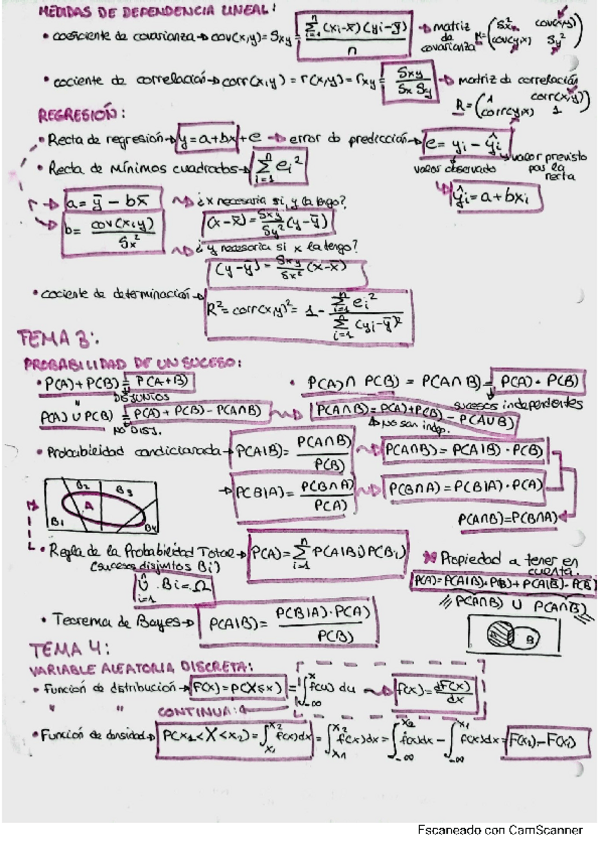 MEDIDAS DE DEPENDENCIA LINEAL:
• coeficiente de covarianza → cov(x,y) = Sxy = Σ(i=1..n) (xi - x̄)(yi - ȳ) / n → matriz de covarianza M = (Sx² cov(x,y) / cov(y,x) Sy²)
• cociente de correlación → corr(x,y) = r(x,y) = rxy = Sxy / Sx Sy → matriz de correlación
R = (1 corr(x,y) / corr(y,x) 1)
REGRESIÓN:
• Recta de regresión → y = a + bx + e → error de predicción → e = yi - ŷi
valor observado
valor previsto por la recta
• Recta de mínimos cuadrados → Σ(i=1..n) ei²
ŷi = a + bxi
a = ȳ - bx̄ → ¿x necesaria si y la tengo?
(x - x̄) = Sxy/Sy² (y - ȳ)
b = cov(x,y) / Sx² → ¿y necesaria si x la tengo?
(y - ȳ) = Sxy/Sx² (x - x̄)
• cociente de determinación → R² = corr(x,y)² = 1 - Σ(i=1..n) ei² / Σ(i=1..n) (yi - ȳ)²
TEMA 3:
PROBABILIDAD DE UN SUCESO:
• P(A) + P(B) = P(A+B)
DISJUNTOS
• P(A) ∩ P(B) = P(A∩B) = P(A) · P(B)
sucesos independientes
P(A) ∪ P(B) = P(A) + P(B) - P(A∩B) → P(A∩B) = P(A) + P(B) - P(A∪B)
NO DISJ.
NO son indep.
• Probabilidad condicionada → P(A|B) = P(A∩B) / P(B) → P(A∩B) = P(A|B) · P(B)
→ P(B|A) = P(B∩A) / P(A) → P(B∩A) = P(B|A) · P(A)
P(A∩B) = P(B∩A)
B1 B2 B3 B4 A
• Regla de la Probabilidad Total → P(A) = Σ(i=1..n) P(A|Bi) P(Bi)
(sucesos disjuntos Bi)
∪(i=1..n) Bi = Ω
* Propiedad a tener en cuenta:
P(A) = P(A|B) · P(B) + P(A|B̄) · P(B̄)
P(A∩B) ∪ P(A∩B̄)
A B
• Teorema de Bayes → P(A|B) = P(B|A) · P(A) / P(B)
TEMA 4:
VARIABLE ALEATORIA DISCRETA:
• Función de distribución → F(x) = P(X≤x) = ∫(-∞..x) f(u) du → f(x) = dF(x)/dx
" " CONTINUA:
• Función de densidad → P(x1 < X < x2) = ∫(x1..x2) f(x)dx = ∫(x1..x2) f(x)dx = ∫(-∞..x2) f(x)dx - ∫(-∞..x1) f(x)dx = F(x2) - F(x1)
Escaneado con CamScanner